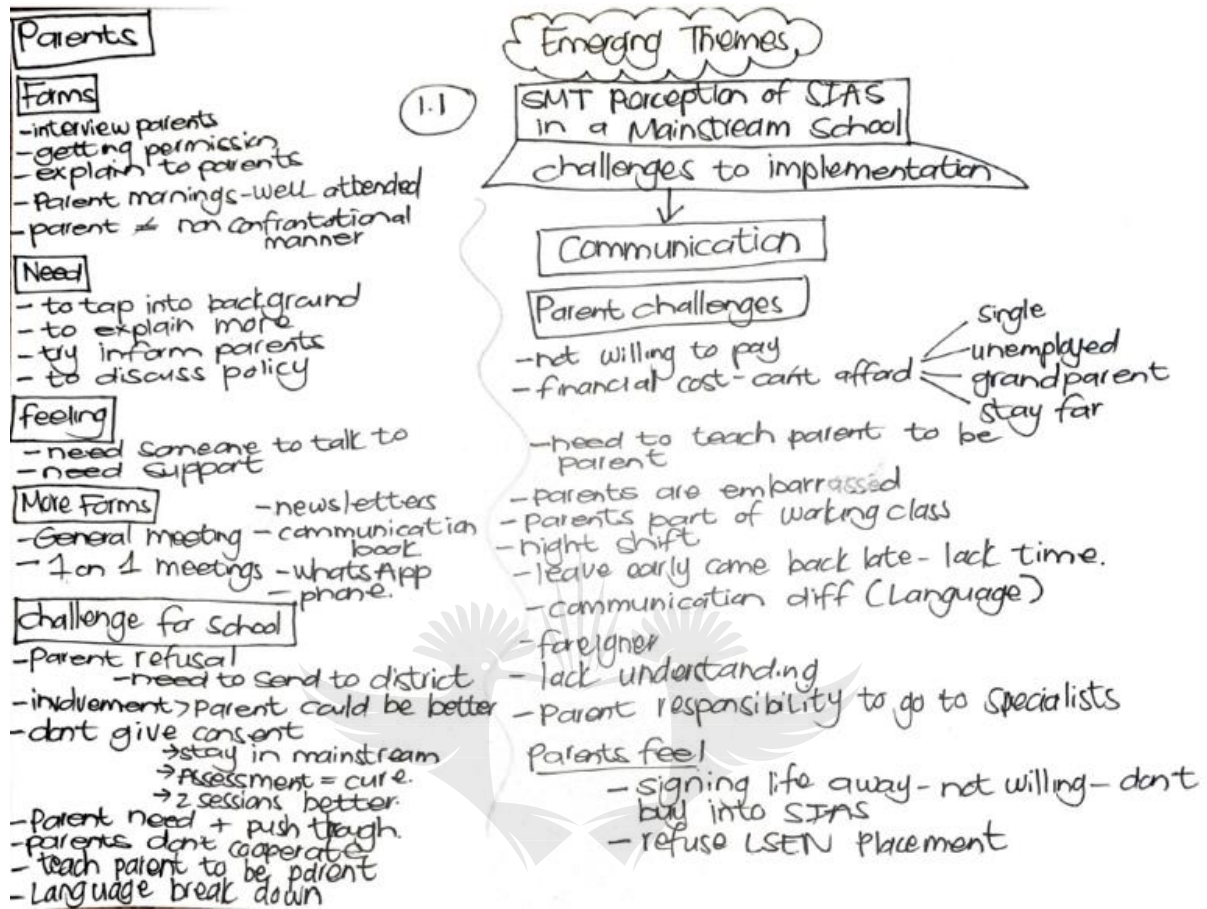 Parents
Forms
-interview parents
-getting permission
-explain to parents
-Parent mornings-well attended
-parent ≠ non confrontational
manner
Need
- to tap into background
- to explain more
- try inform parents
- to discuss policy
feeling
-need someone to talk to
-need support
More Forms
-General meeting
- 1 on 1 meetings
-newsletters
-communication
book
-whatsApp
-phone.
challenge for school
-Parent refusal
-need to send to district
-involvement>parent could be better
-dont give consent
→stay in mainstream
→Assessment = cure.
→2 sessions better.
-Parent need + push through.
-parents dont cooperate
-teach parent to be parent
-Language break down
1.1
Emerging Themes
SMT perception of SIAS
in a Mainstream School
challenges to implementation
Communication
Parent challenges
-not willing to pay
-financial cost-cant afford
single
unemployed
grandparent
stay far
-need to teach parent to be
parent
-parents are embarrassed
-Parents part of working class
-night shift
-leave early come back late- lack time.
-communication diff (Language)
-foreigner
-lack understanding
-Parent responsibility to go to specialists
Parents feel
-signing life away-not willing-don't
buy into SIAS
-refuse LSEN Placement